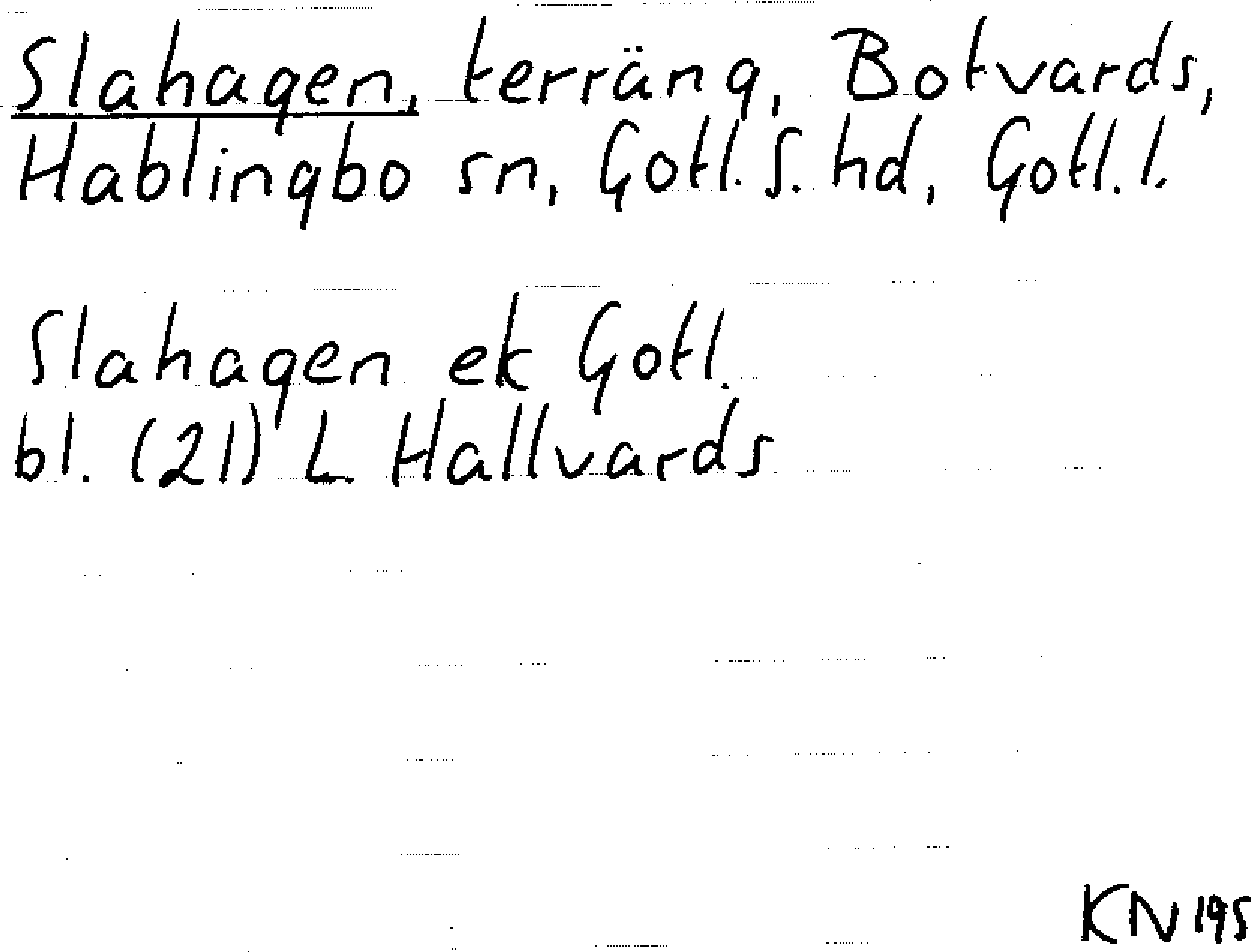 Slahagen, terräng, Botvards,
Hablingbo sn, Gotl. S. hd, Gotl. l.
Slahagen ek Gotl.
bl. (21) L Hallvards
KN 195